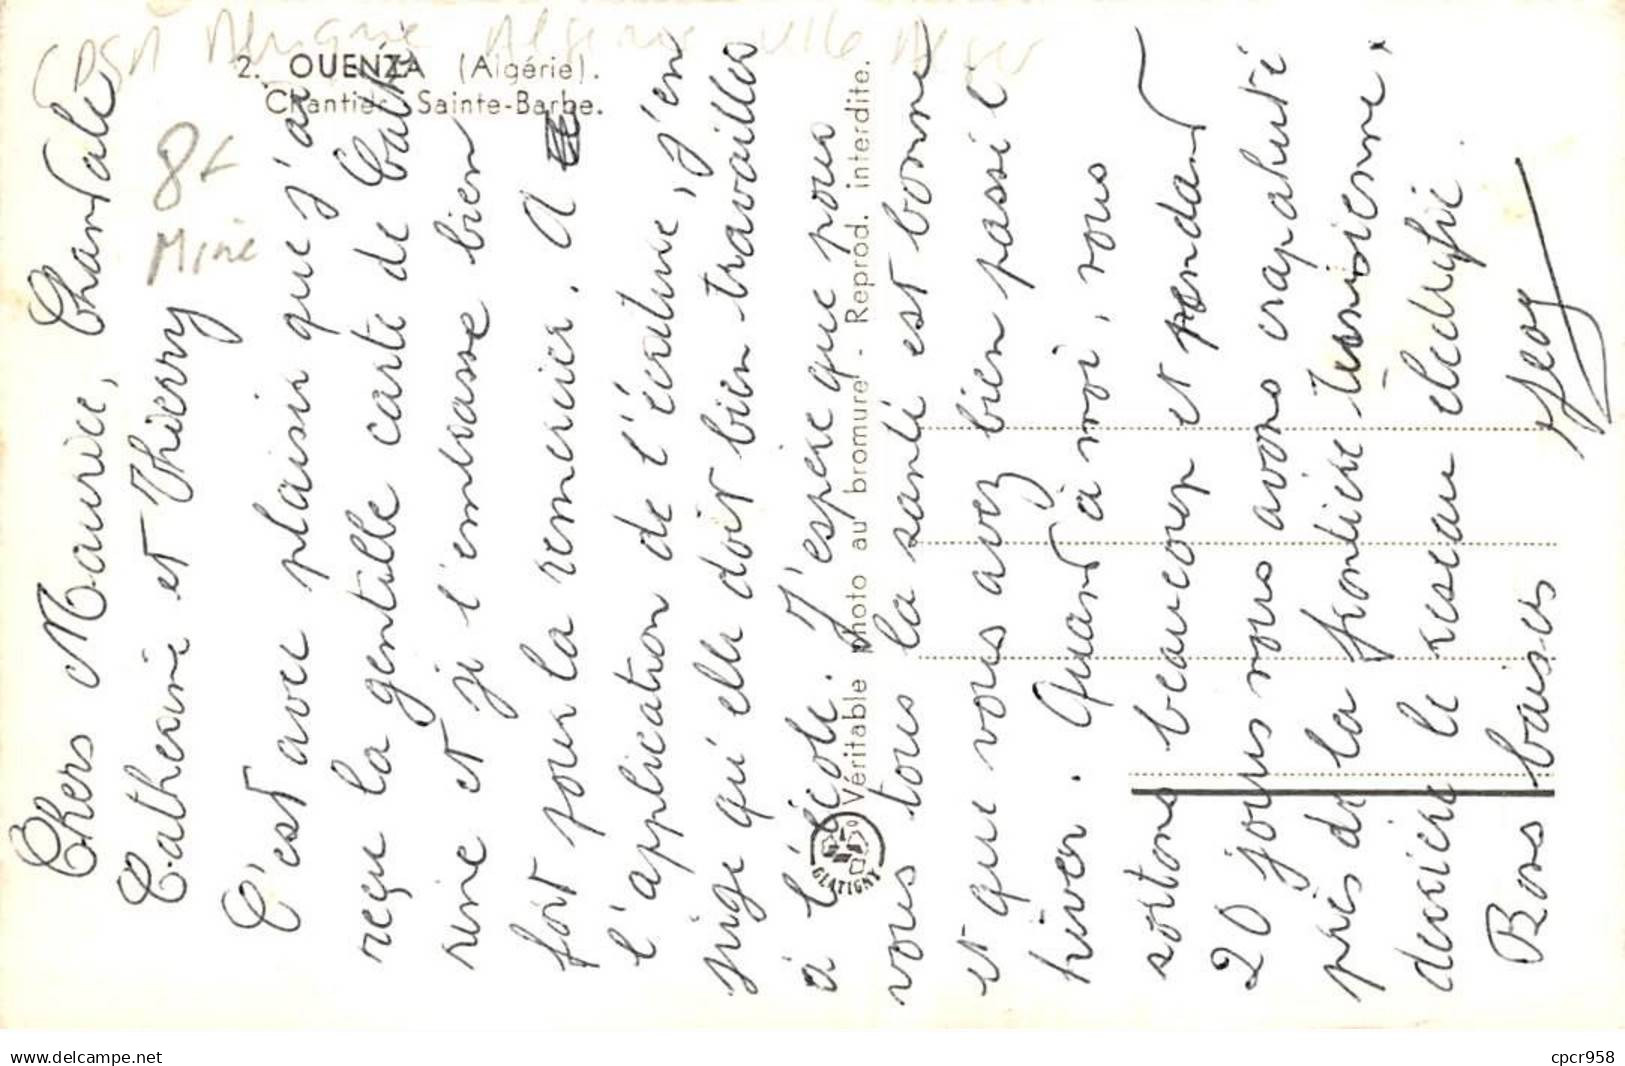 CPSM Afrique Algérie
2. OUENZA (Algérie).
Chantier Sainte-Barbe.
8€
Mine
Véritable photo au bromure - Reprod. interdite.
GLATIGNY
Chers Maurice, Chantale
Catherine et Thierry
C'est avec plaisir que j'ai
reçu la gentille carte de Cathe
rine et je l'embrasse bien
fort pour la remercier. A
l'application de l'écriture, j'en
juge qu'elle doit bien travailler
à l'école. J'espère que pour
vous tous la santé est bonne
et que vous avez bien passé l'
hiver. Quant à moi, nous
sortons beaucoup et pendant
20 jours nous avons crapahuté
près de la frontière tunisienne,
derrière le reseau electrifié.
Bons baisers
delcampe.net
cpcr958